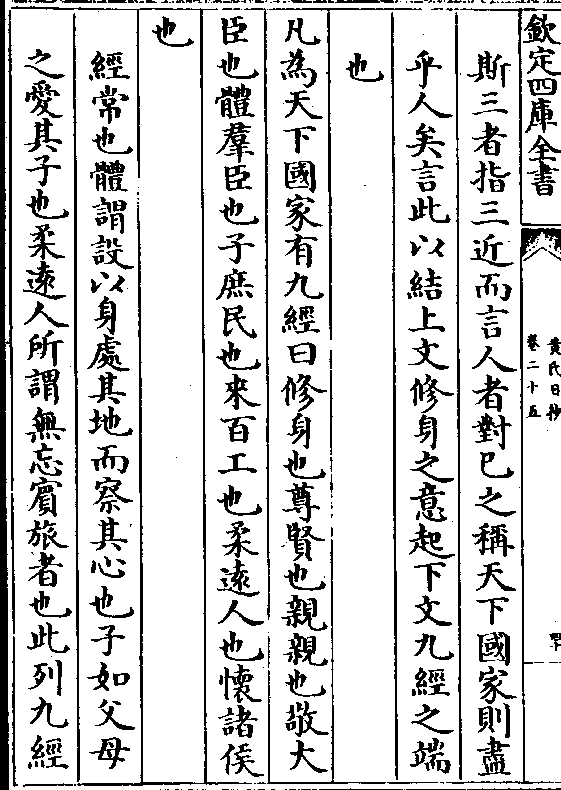 欽定四庫全書
黄氏日抄
卷二十五
斯三者指三近而言人者對已之稱天下國家則盡
乎人矣言此以結上文修身之意起下文九經之端
也
凡為天下國家有九經曰修身也尊賢也親親也敬大
臣也體羣臣也子庶民也來百工也柔逺人也懷諸侯
也
經常也體謂設以身處其地而察其心也子如父母
之愛其子也柔逺人所謂無忘賓旅者也此列九經